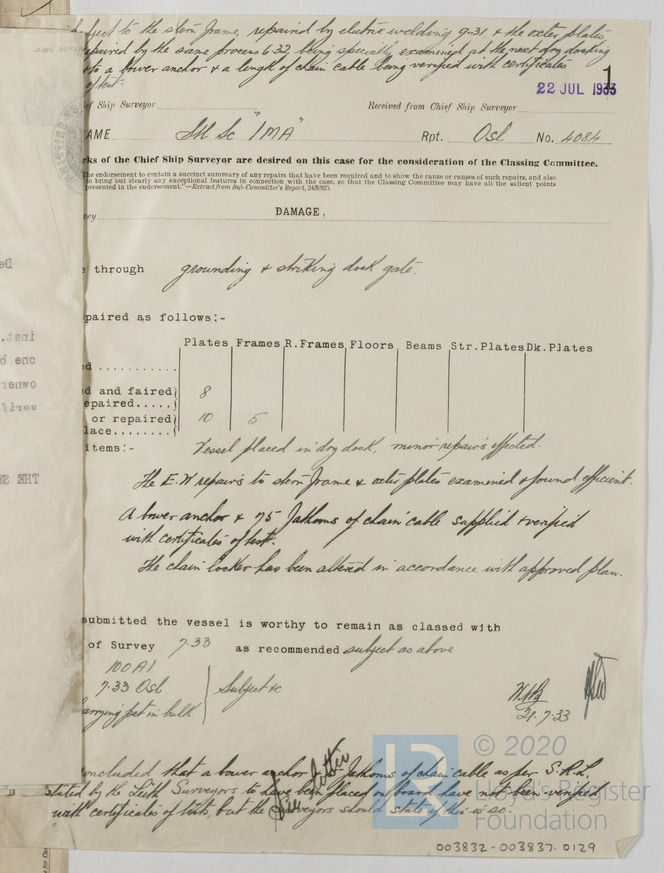 to the stern frame, repaired by electric welding 9-31 & the oxter plates
repaired by the same process 6.32, being specially examined at the next dry docking
to a bower anchor & a length of chain cable being verified with certificates
of test.
1
22 JUL 1933
ef Ship Surveyor Received from Chief Ship Surveyor
AME "IMA" Rpt. Osl No. 4084
rks of the Chief Ship Surveyor are desired on this case for the consideration of the Classing Committee.
The endorsement to contain a succinct summary of any repairs that have been required and to show the cause or causes of such repairs, and also
to bring out clearly any exceptional features in connection with the case, so that the Classing Committee may have all the salient points
presented in the endorsement."—Extract from Sub-Committee's Report,
ey DAMAGE.
e through grounding & striking dock gate.
paired as follows:-
Plates Frames R.Frames Floors Beams Str.Plates Dk.Plates
ed ...........
d and faired 8
epaired.....
or repaired 10 5
lace........
items:- Vessel placed in dry dock, minor repairs effected.
The E.W repairs to stern frame & oxter plates examined & found efficient.
A bower anchor & 75 fathoms of chain cable supplied & verified
with certificates of test.
The chain locker has been altered in accordance with approved plan.
submitted the vessel is worthy to remain as classed with
of Survey 7.33 as recommended subject as above
100A1
7.33 Osl Subject &c
Carrying pet in bulk
21.7.33
See letter
concluded that a bower anchor & fathoms of chain cable as per S.R.L.
stated by the Leith Surveyors to have been placed on board have not been verified
with certificates of tests, but the Surveyors should state if this is so.
© 2020
Lloyd's Register
Foundation
003832-003837-0129